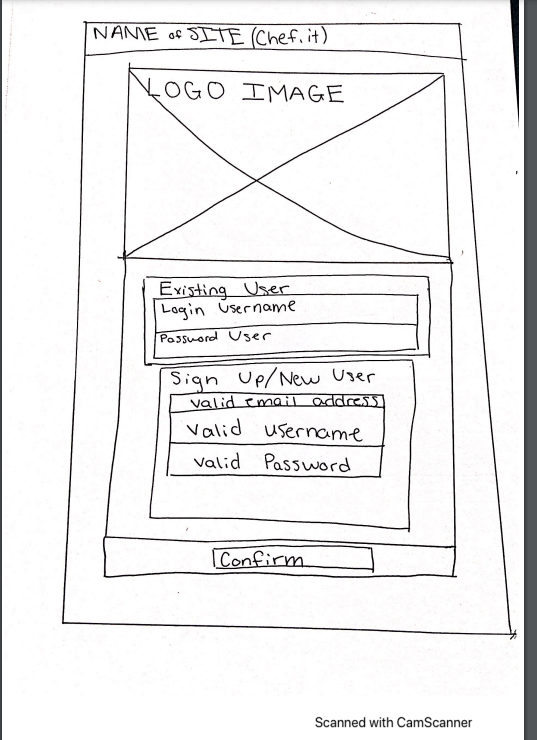 NAME of SITE (Chef.it)
LOGO IMAGE
Existing User
Login Username
Password User
Sign Up/New User
valid email address
valid username
valid Password
Confirm
Scanned with CamScanner